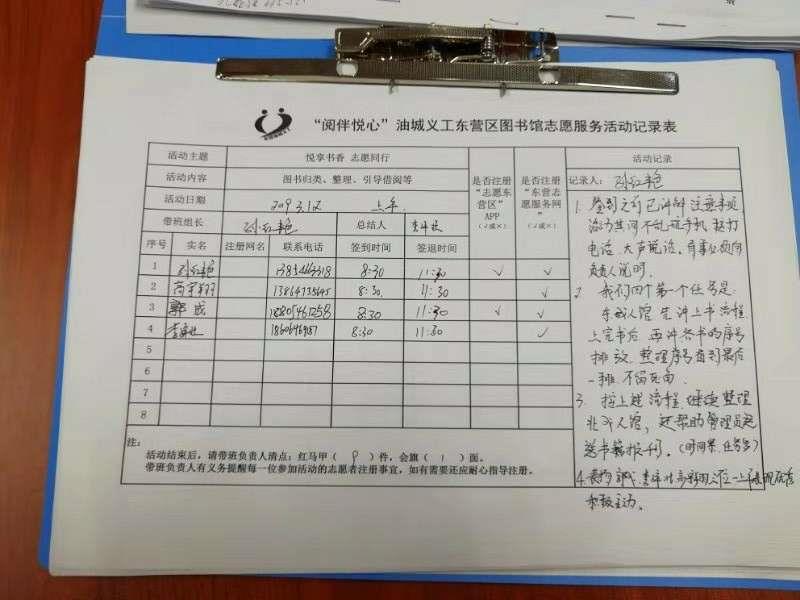 “阅伴悦心”油城义工东营区图书馆志愿服务活动记录表
活动主题 悦享书香 志愿同行
活动内容 图书归类、整理、引导借阅等
活动日期 上午
带班组长 孙红艳 总结人
是否注册“志愿东营区”APP（√或×）
是否注册“东营志愿服务网”（√或×）
序号 实名 注册网名 联系电话 签到时间 签退时间
1 孙红艳 8:30 11:30 √ √
2 13864735645 8:30 11:30 √
3 郭成 8:30 11:30 √ √
4 8:30 11:30 √
5
6
7
8
注：
活动结束后，请带班负责人清点：红马甲（ ）件，会旗（1）面。
带班负责人有义务提醒每一位参加活动的志愿者注册事宜，如有需要还应耐心指导注册。
活动记录
记录人：孙红艳
1. 签到之前已讲解注意事项，
期间不乱玩手机、接打
电话、大声说话，有事必须向
负责人说明。
2. 我们四个第一个任务是：
先讲上书流程，
上完书后，再将各书的序号
排放，整理序号直到最后
一排，不留死角。
3. 按上述流程，继续整理
人馆，还帮助管理员运
送书籍报刊。（时间紧、任务多）
积极主动。